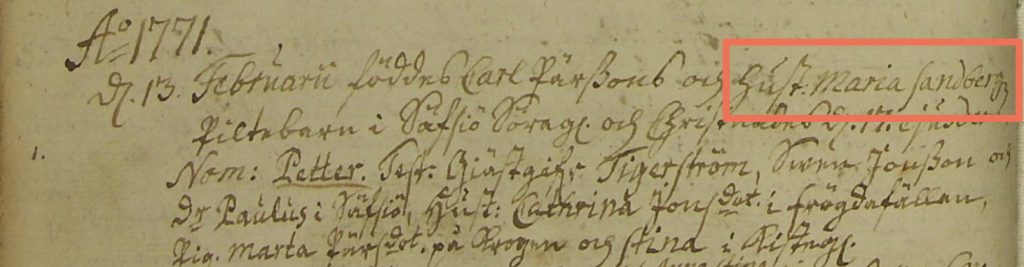 Ao 1771.
d. 13. Februarii föddes Carl Pärßons och Hust: Maria Sandbergz
Piltebarn i Säfsiö Söragl. och Christnades d. 17. ejusdem
1. Nom: Petter. Test: Giästgifr Tigerström, Swen Jonßon och
Dr Paulus i Säfsiö, Hust: Cathrina Jonsdot. i Frögdafällan,
Pig. Marta Pärsdot. på Krogen och Stina i Kistegl.